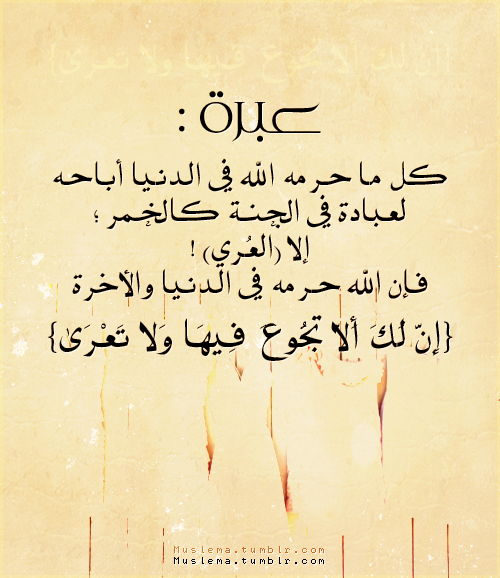 {إن لك ألا تجوع فيها ولا تعرى}
عبرة :
كل ما حرمه الله في الدنيا أباحه
لعبادة في الجنة كالخمر ؛
إلا (العُري) !
فإن الله حرمه في الدنيا والأخرة
{إنّ لكَ ألا تجُوعَ فِيهَا وَلا تَعْرَىٰ}
Muslema.tumblr.com
Muslema.tumblr.com